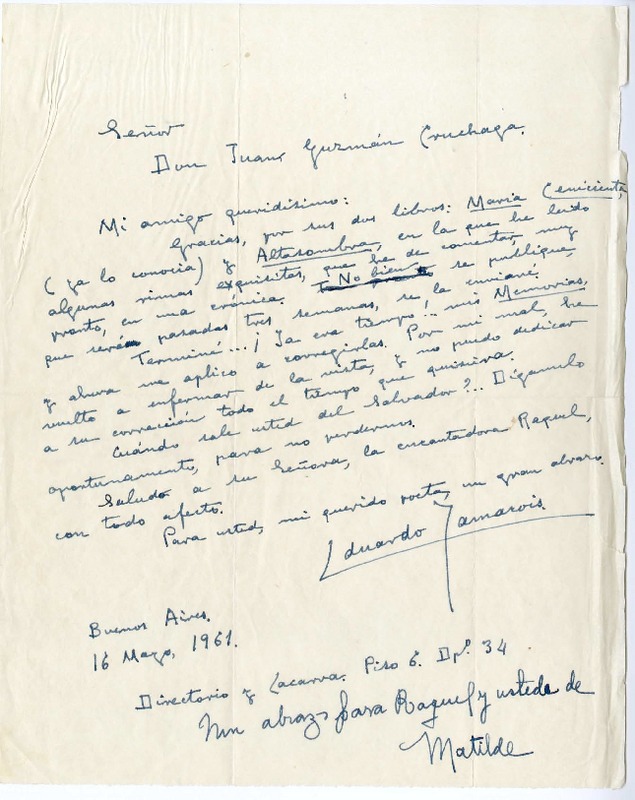 Señor
Don Juan Guzmán Cruchaga.
Mi amigo queridísimo:
Gracias, por sus dos libros: María Cenicienta,
(ya lo conocía) y Altasombra, en la que he leído
algunas rimas exquisitas, que he de comentar, muy
pronto, en una crónica. No bien se publique,
que será pasadas tres semanas, se la enviaré.
Terminé...¡Ya era tiempo... mis Memorias,
y ahora me aplico a corregirlas. Por mi mal, he
vuelto a enfermar de la vista, y no puedo dedicar
a su corrección todo el tiempo que quisiera.
Cuándo sale usted del Salvador?... Dígamelo
oportunamente, para no perdernos.
Saludo a su Señora, la encantadora Raquel,
con todo afecto.
Para usted, mi querido poeta, un gran abrazo.
Eduardo Zamacois.
Buenos Aires.
16 Mayo, 1961.
Directorio y Lacarra. Piso 6. Dpº. 34
Un abrazo para Raquel y usted de
Matilde